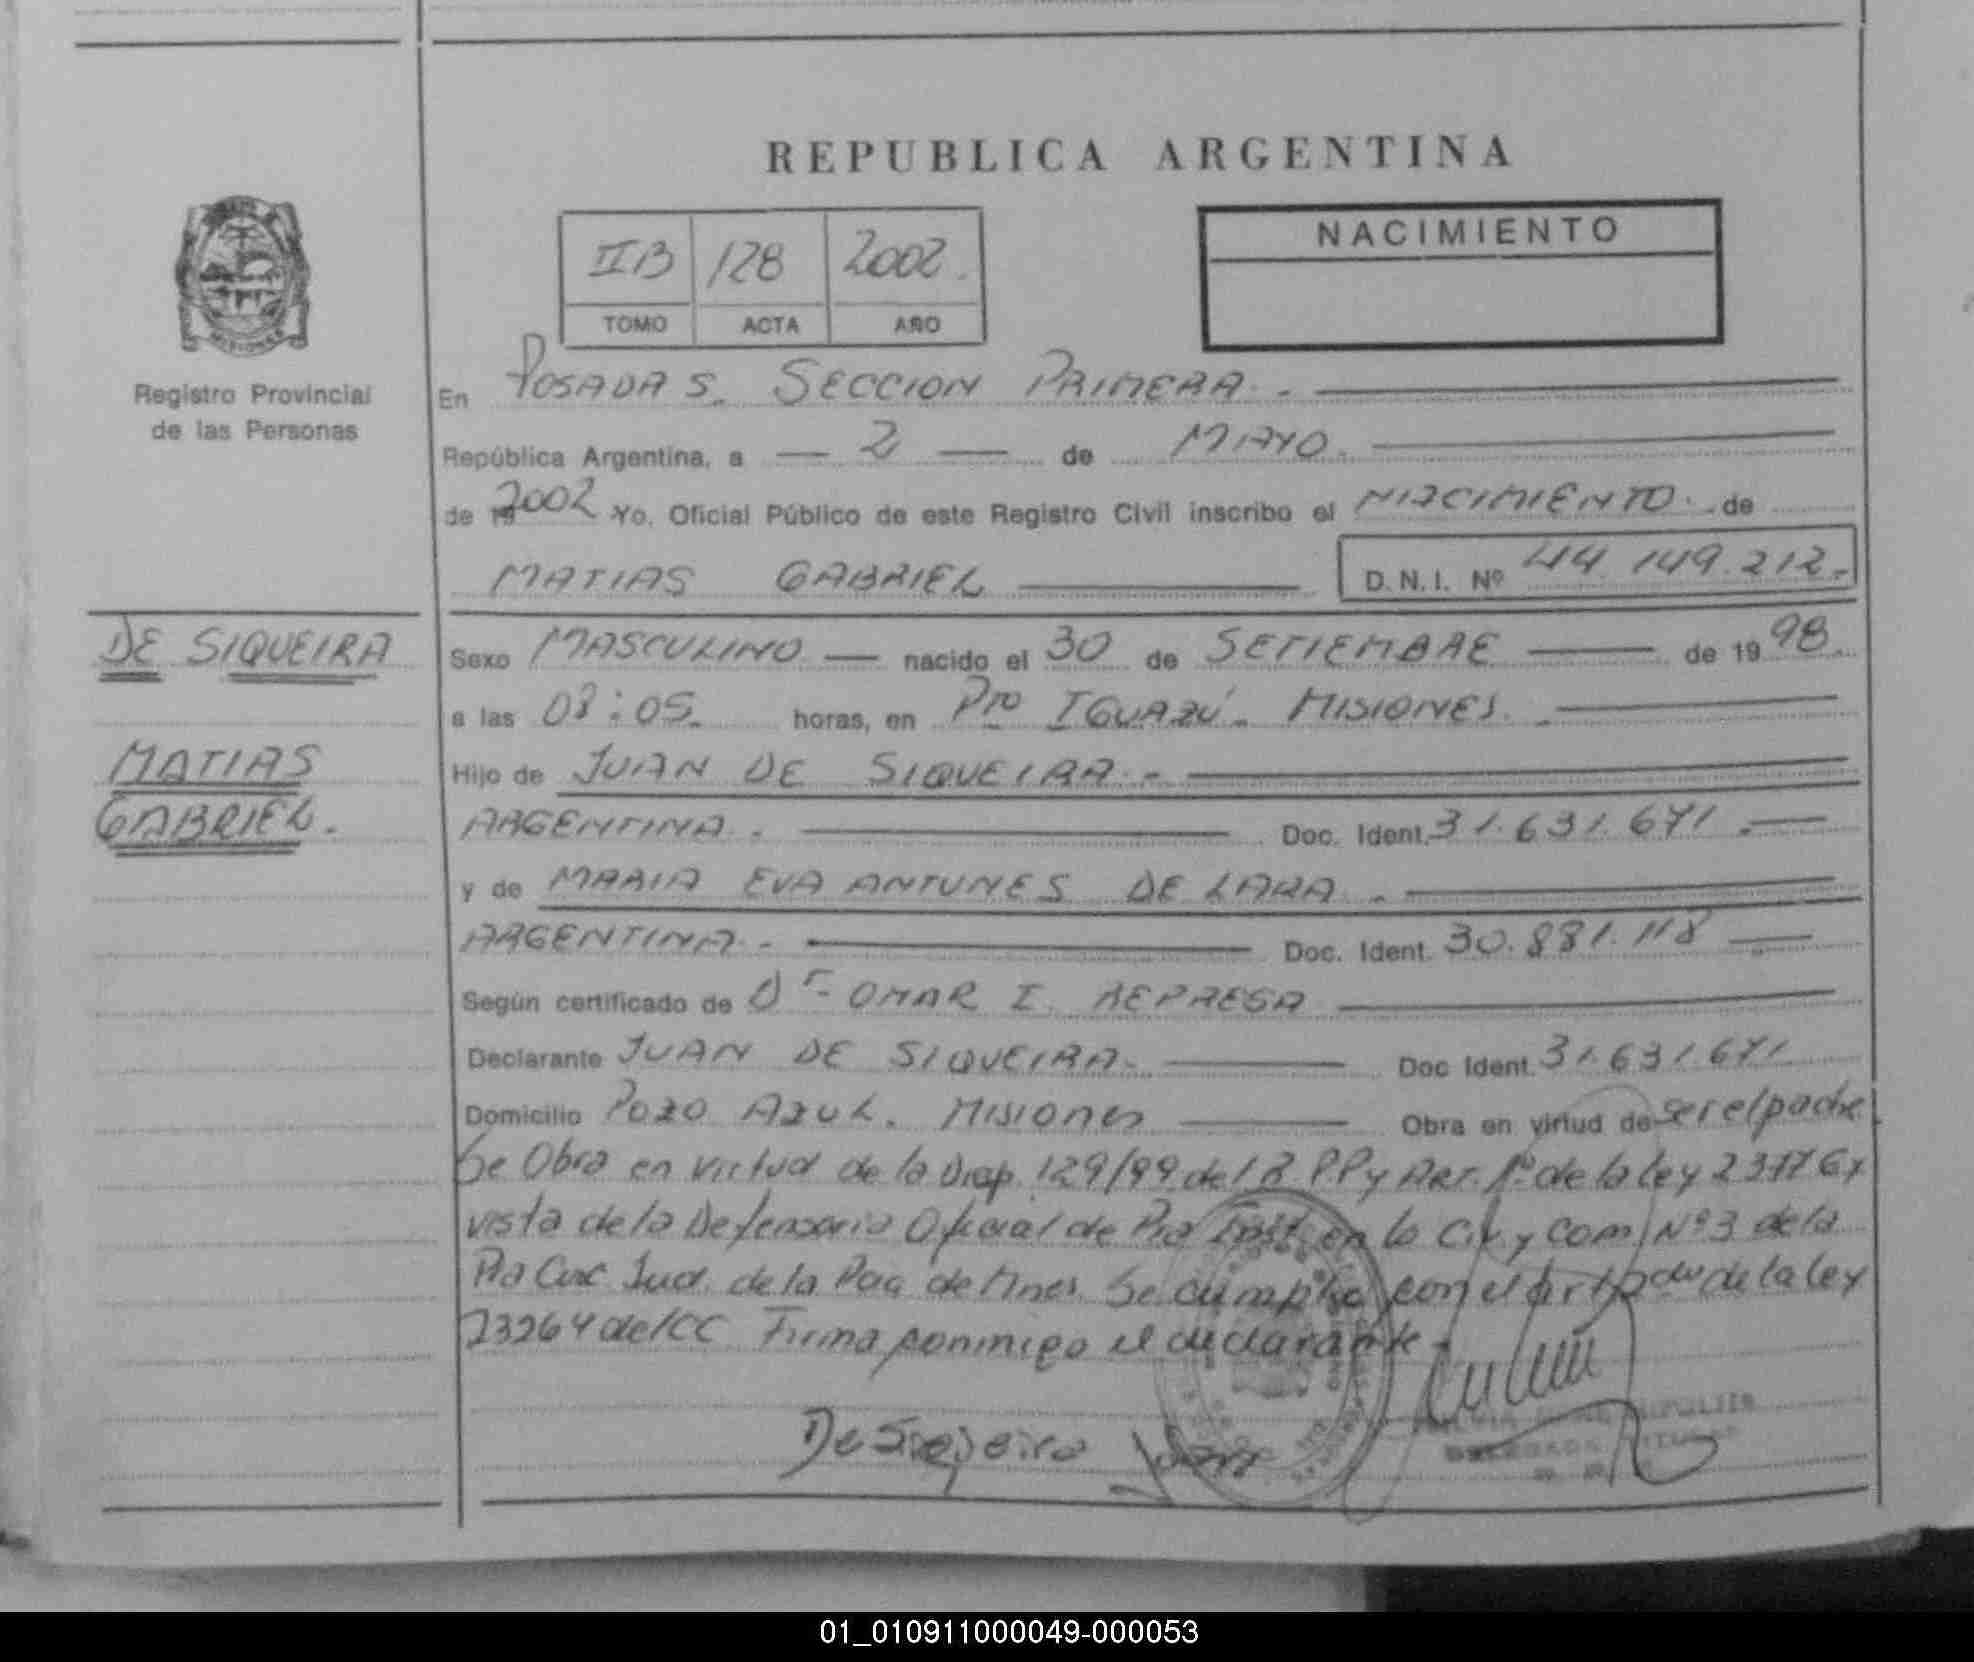 REPUBLICA ARGENTINA
IIB 128 2002.
TOMO ACTA AÑO
NACIMIENTO
MISIONES
Registro Provincial
de las Personas
En POSADAS. SECCION PRIMERA.-
República Argentina, a — 2 — de MAYO.
de 19 2002 Yo, Oficial Público de este Registro Civil inscribo el NACIMIENTO. de
MATIAS GABRIEL D.N.I. Nº 44.149.212.-
DE SIQUEIRA
MATIAS
GABRIEL.
Sexo MASCULINO — nacido el 30 de SETIEMBRE — de 19 98.
a las 03:05. horas, en Pto IGUAZÚ - MISIONES.-
Hijo de JUAN DE SIQUEIRA.-
ARGENTINA.- Doc. Ident. 31.631.671.-
y de MARIA EVA ANTUNES DE LARA.-
ARGENTINA.- Doc. Ident. 30.881.118 —
Según certificado de Dr- OMAR I. REPRESA
Declarante JUAN DE SIQUEIRA.- Doc Ident. 31.631.671
Domicilio POZO AZUL. MISIONES Obra en virtud de ser el padre
Se Obra en virtud de la Disp. 129/99 del R.P.P y Art. 1º de la ley 23776 y
vista de la Defensoria Oficial de Pra Inst. en lo Civ. y Com. Nº 3 de la
Pra Circ Jud. de la Pcia de Mnes. Se cumple con el de la ley
23264 del CC Firma conmigo el declarante.-
De Siqeira Juan
01_010911000049-000053